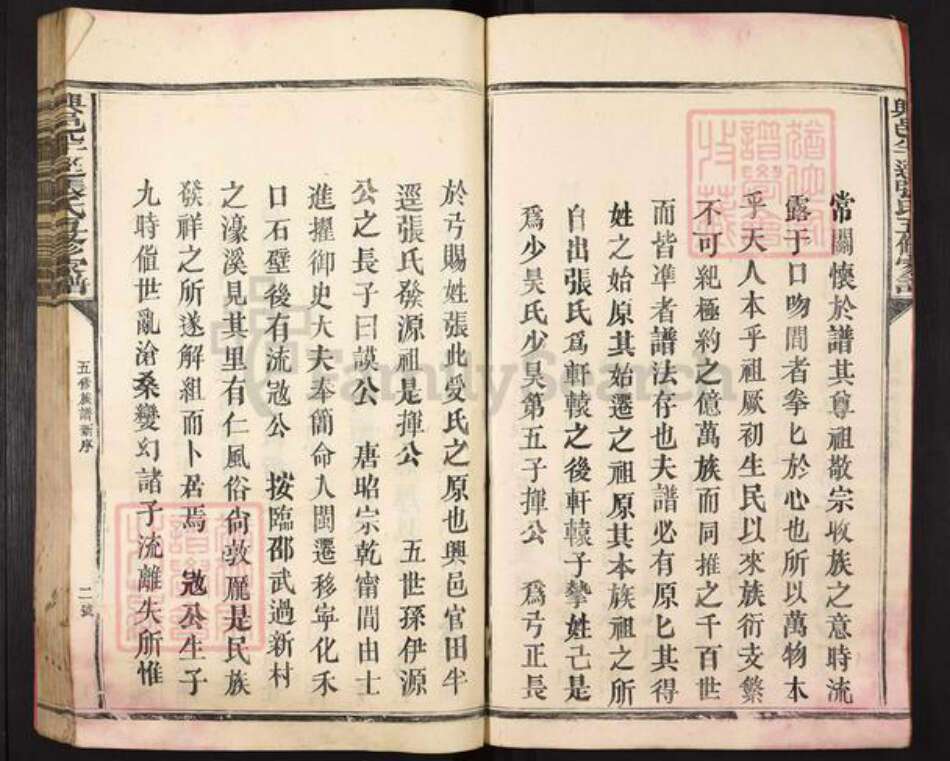 常關懷於譜其尊祖敬宗收族之意時流
露于口吻間者拳匕於心也所以萬物本
乎天人本乎祖厥初生民以來族衍支繁
不可紀極約之億萬族而同推之千百世
而皆準者譜法存也夫譜必有原匕其得
姓之始原其始遷之祖原其本族祖之所
自出張氏爲軒轅之後軒轅子摯姓己是
爲少昊氏少昊第五子揮公 爲弓正長
於弓賜姓張此受氏之原也興邑官田半
逕張氏發源祖是揮公 五世孫伊源
公之長子曰謨公 唐昭宗乾甯間由士
進擢御史大夫奉簡命入閩遷移寧化禾
口石壁後有流公 按臨邵武過新村
之濠溪見其里有仁風俗尙敦厖是民族
發祥之所遂解組而卜居焉 公生子
九時催世亂滄桑變幻諸子流離失所惟
五修族譜新序
二號
FamilySearch